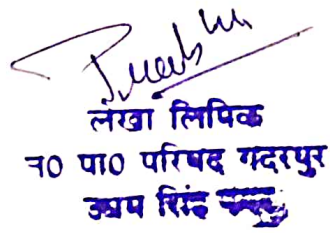 लेखा लिपिक
न0 पा0 परिषद गदरपुर
ऊधम सिंह नगर